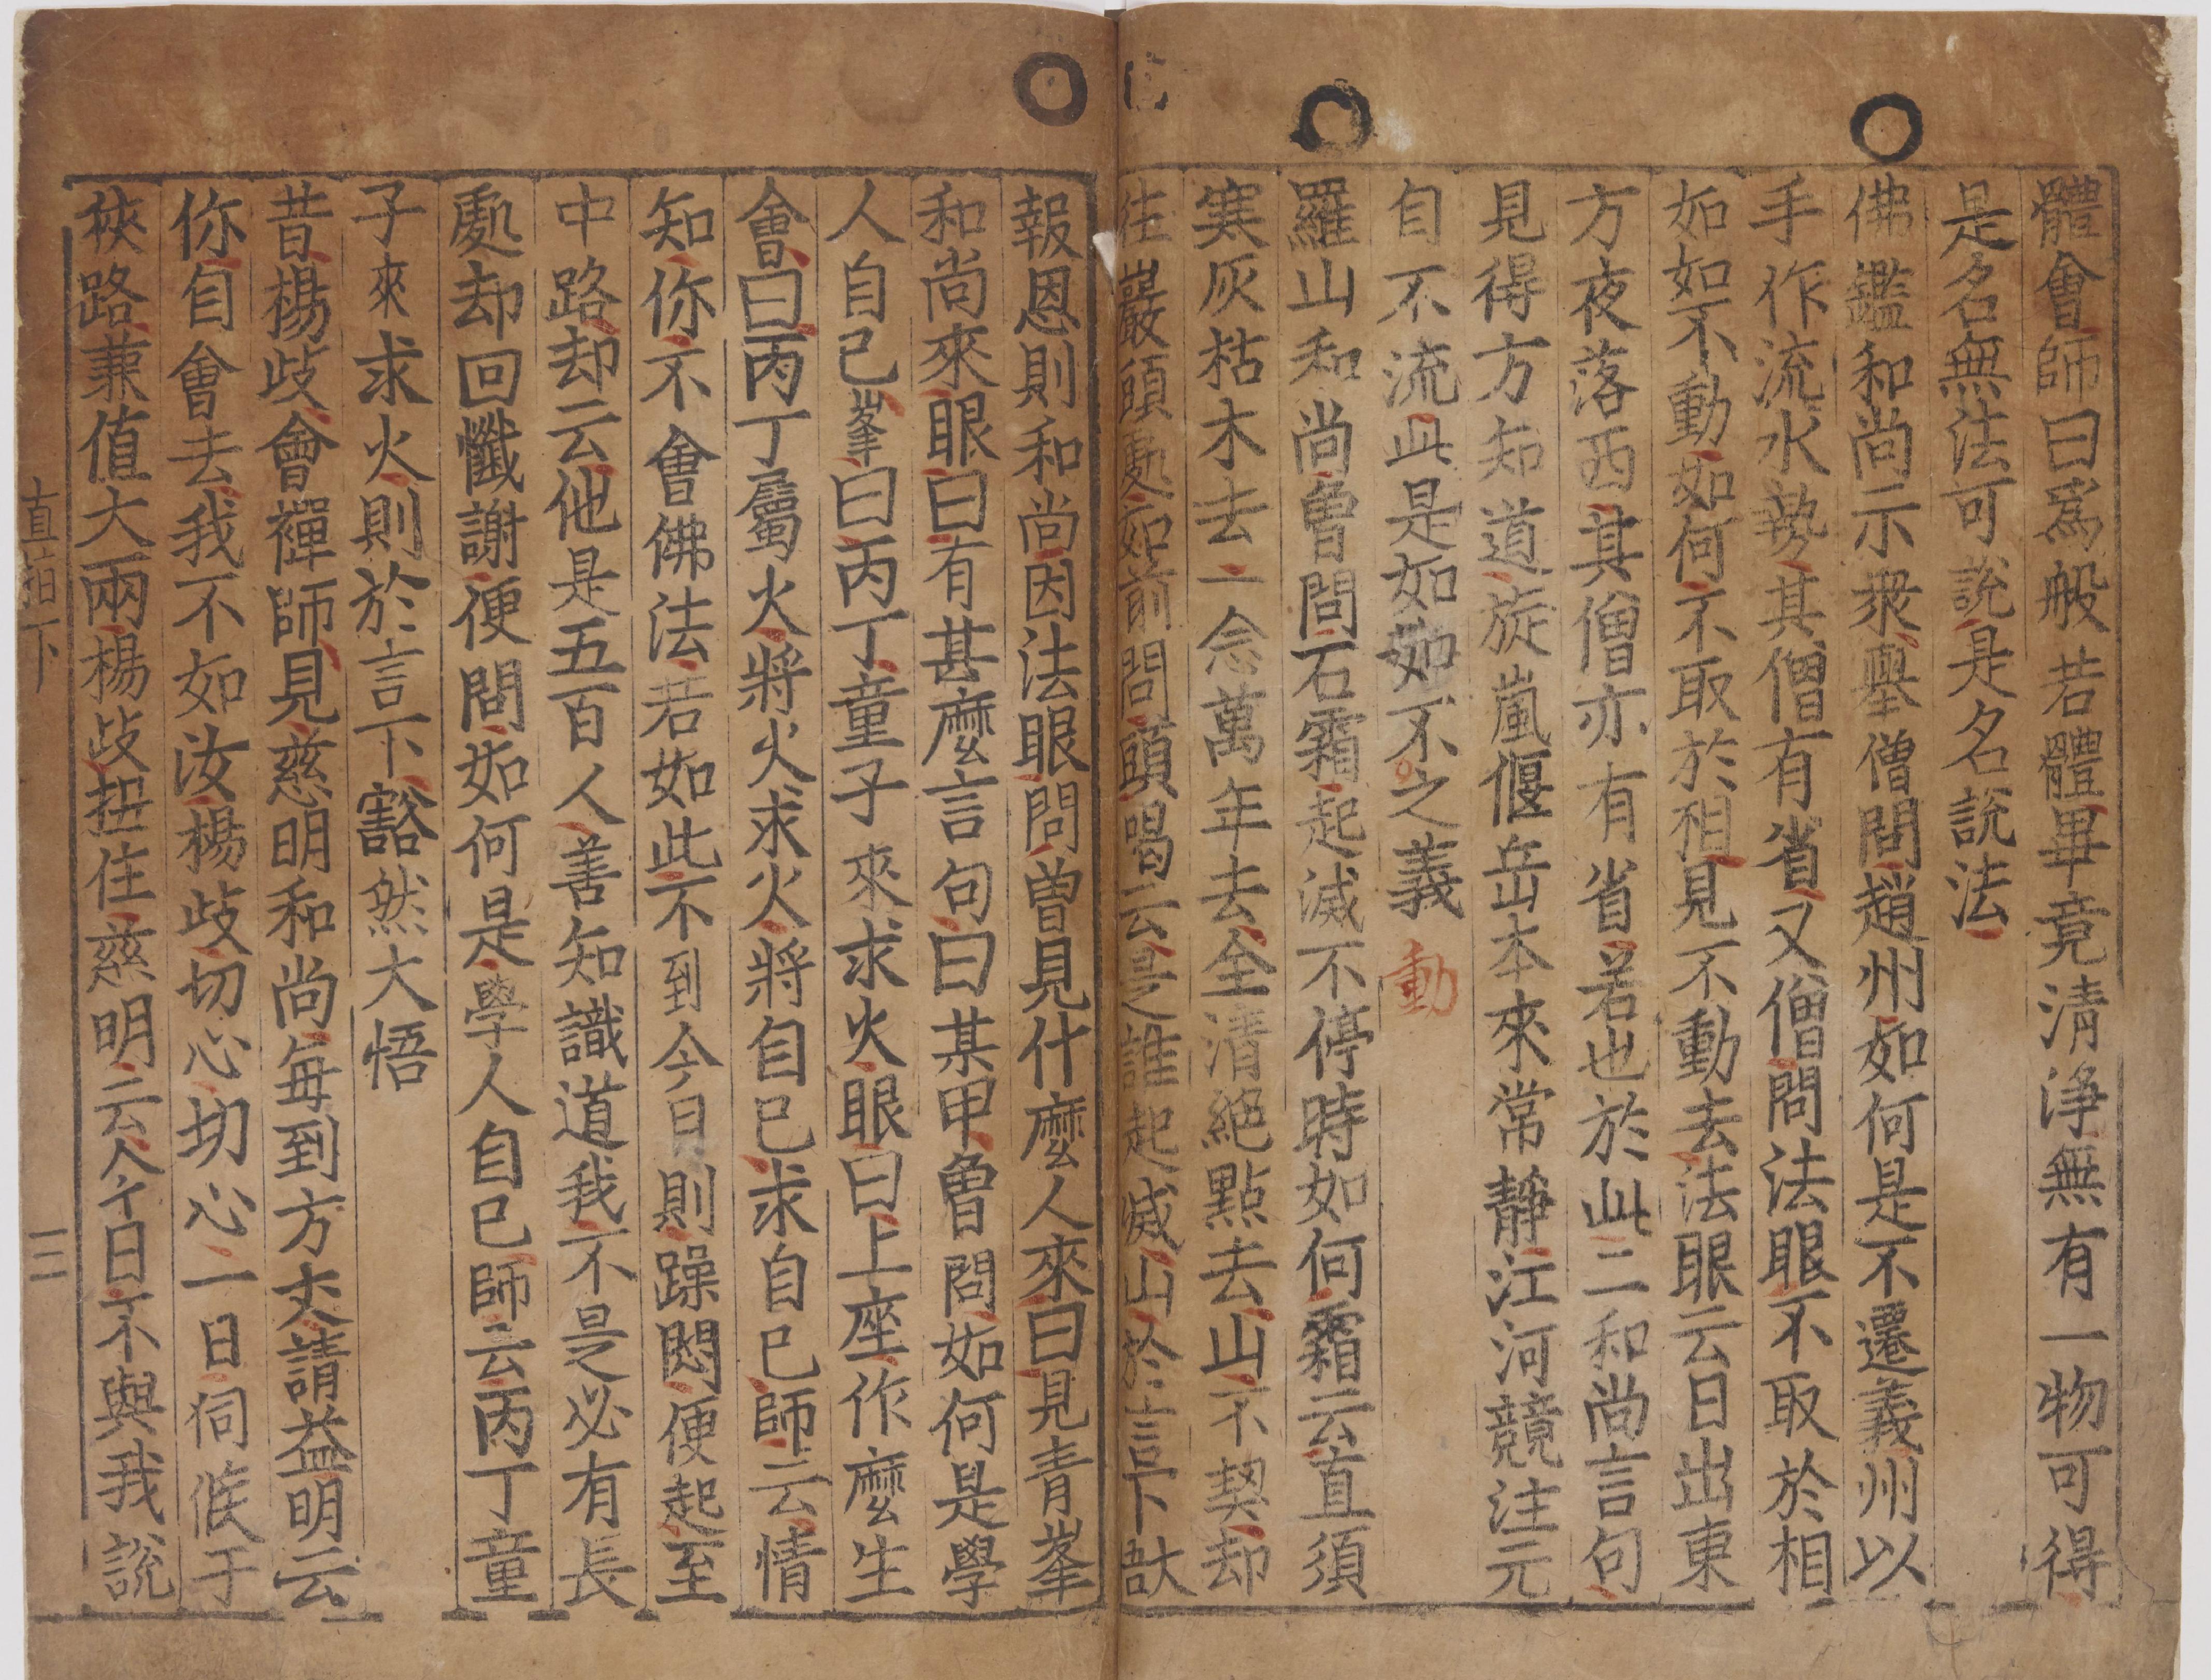 體會師曰爲般若體畢竟清淨無有一物可得
是名無法可說是名說法
佛鑑和尚示衆擧僧問趙州如何是不遷義州以
手作流水勢其僧有省又僧問法眼不取於相
如如不動如何不取於相見不動去法眼云日出東
方夜落西其僧亦有省若也於此二和尚言句
見得方知道旋嵐偃岳本來常靜江河競注元
自不流此是如如不之義
動
羅山和尚曾問石霜起滅不停時如何霜云直須
寒灰枯木去一念萬年去全清絕點去山不契却
往巖頭處如前問頭喝云是誰起滅山於言下㪯
報恩則和尚因法眼問曾見什麼人來曰見青峯
和尚來眼曰有甚麼言句曰某甲曾問如何是學
人自己峯曰丙丁童子來求火眼曰上座作麼生
會曰丙丁屬火將火求火將自己求自己師云情
知你不會佛法若如此不到今日則躁悶便起至
中路却云他是五百人善知識道我不是必有長
處却回懺謝便問如何是學人自己師云丙丁童
子來求火則於言下豁然大悟
昔楊歧會禪師見慈明和尚每到方丈請益明云
你自會去我不如汝楊歧切心切心一日伺候于
狹路兼值大雨楊歧扭住慈明云今日不與我說
直指下
十二